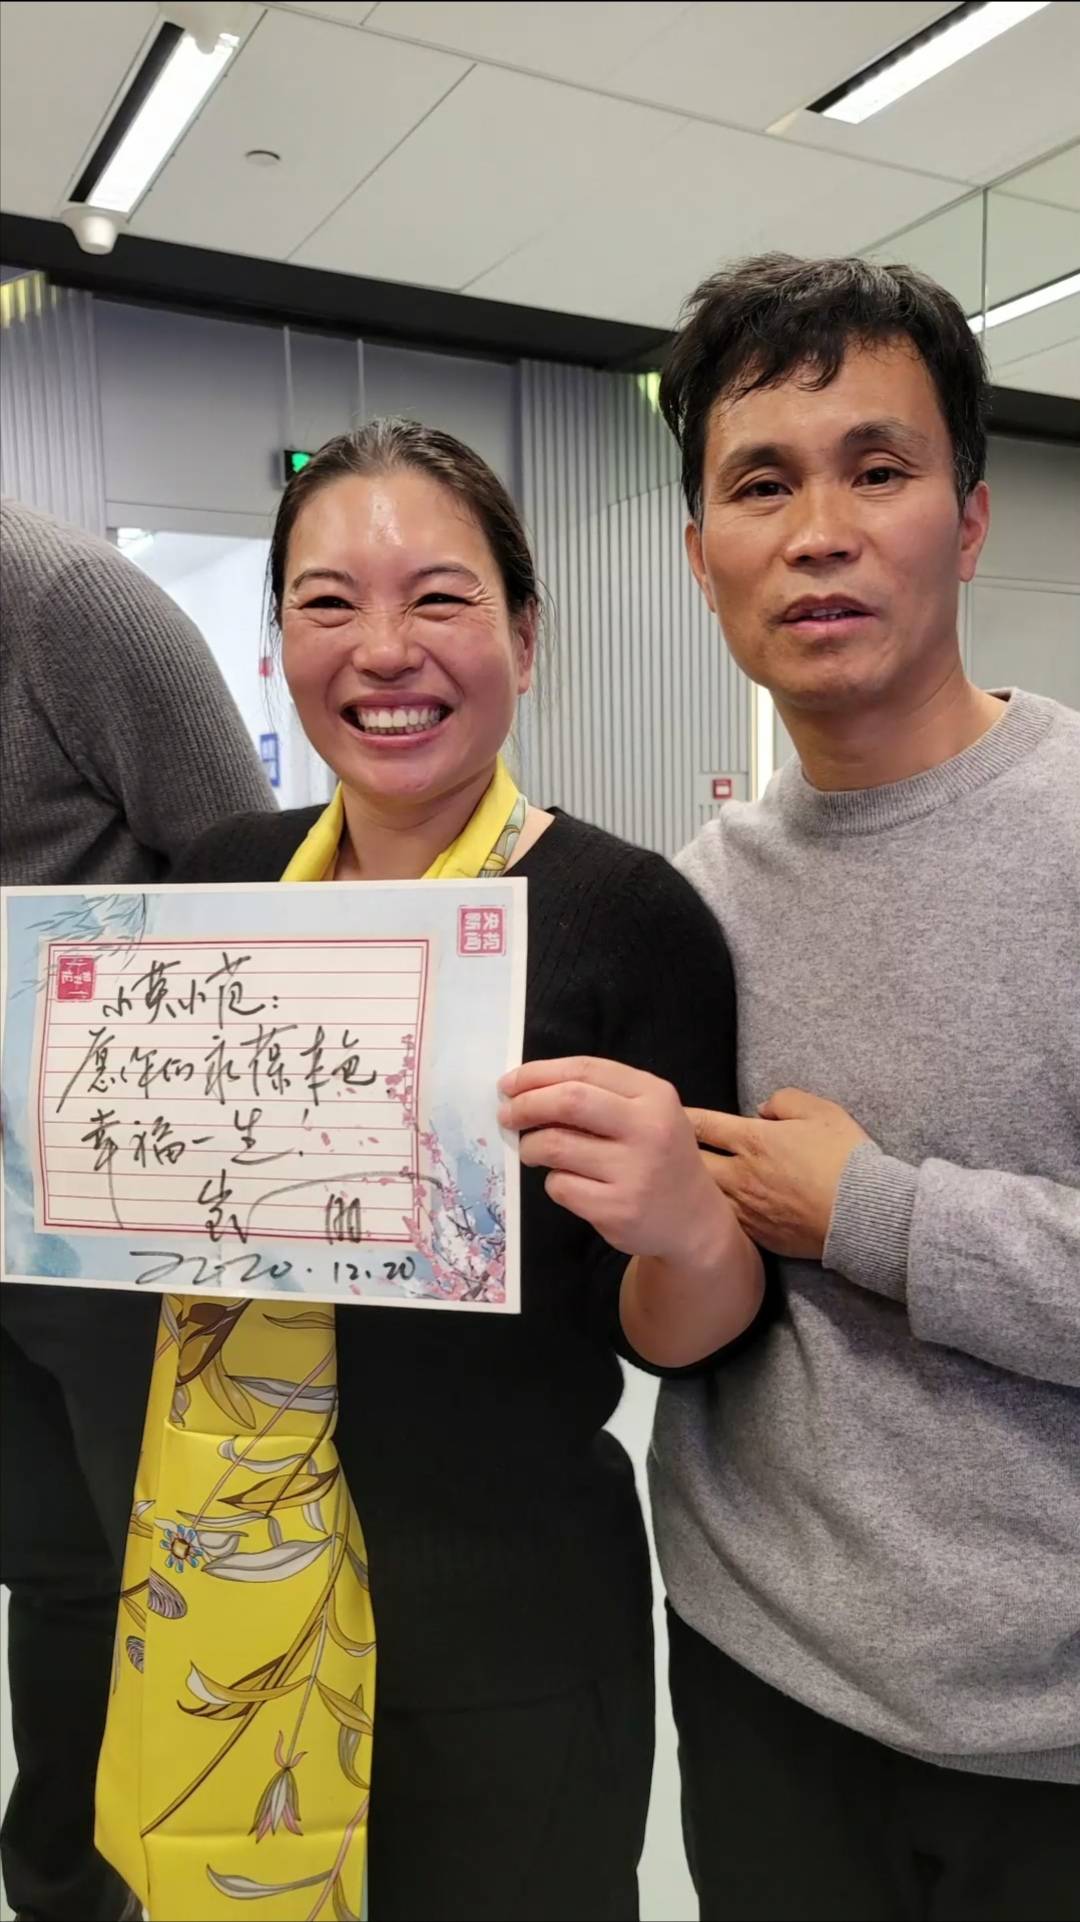 央视新闻
小英小范：
愿你们永葆本色
幸福一生！
2020.12.20